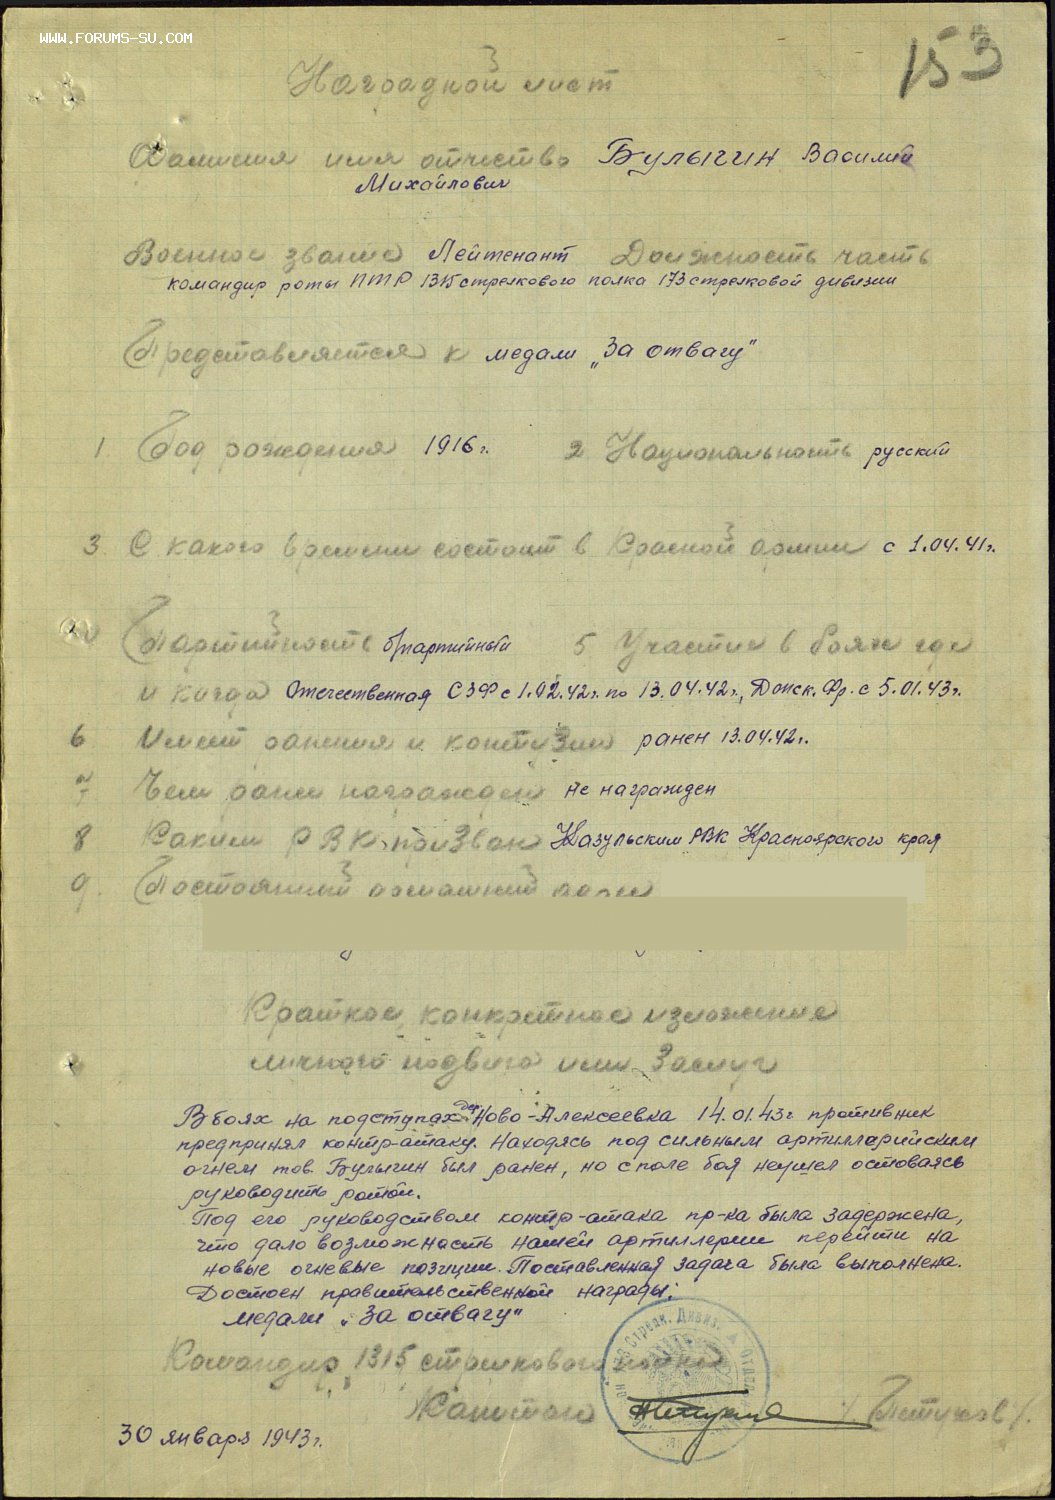 WWW.FORUMS-SU.COM
153
Наградной лист
Фамилия имя отчество Булыгин Василий
Михайлович
Военное звание Лейтенант Должность часть
командир роты ПТР 1315 стрелкового полка 173 стрелковой дивизии
Представляется к медали „За отвагу"
1. Год рождения 1916 г. 2 Национальность русский
3. С какого времени состоит в Красной армии с 1.04.41 г.
Партийность б/партийный 5 Участие в боях где
и когда Отечественная СЗФ с 1.02.42 г. по 13.04.42 г., Донск. Фр. с 5.01.43 г.
6 Имеет ранения и контузии ранен 13.04.42 г.
7 Чем ранее награжден не награжден
8 Каким РВК призван Назульским РВК Красноярского края
9. Постоянный домашний адрес
Краткое, конкретное изложение
личного подвига или заслуг
В боях на подступах дер. Ново-Алексеевка 14.01.43 г противник
предпринял контр-атаку. Находясь под сильным артиллерийским
огнем тов. Булыгин был ранен, но с поле боя неушел остоваясь
руководить ротой.
Под его руководством контр-атака пр-ка была задержена,
что дало возможность нашей артиллерии перейти на
новые огневые позиции. Поставленная задача была выполнена.
Достоен правительственной награды:
медали „За отвагу"
Командир 1315 стрелкового полка
Капитан /Петухов/.
30 января 1943 г.